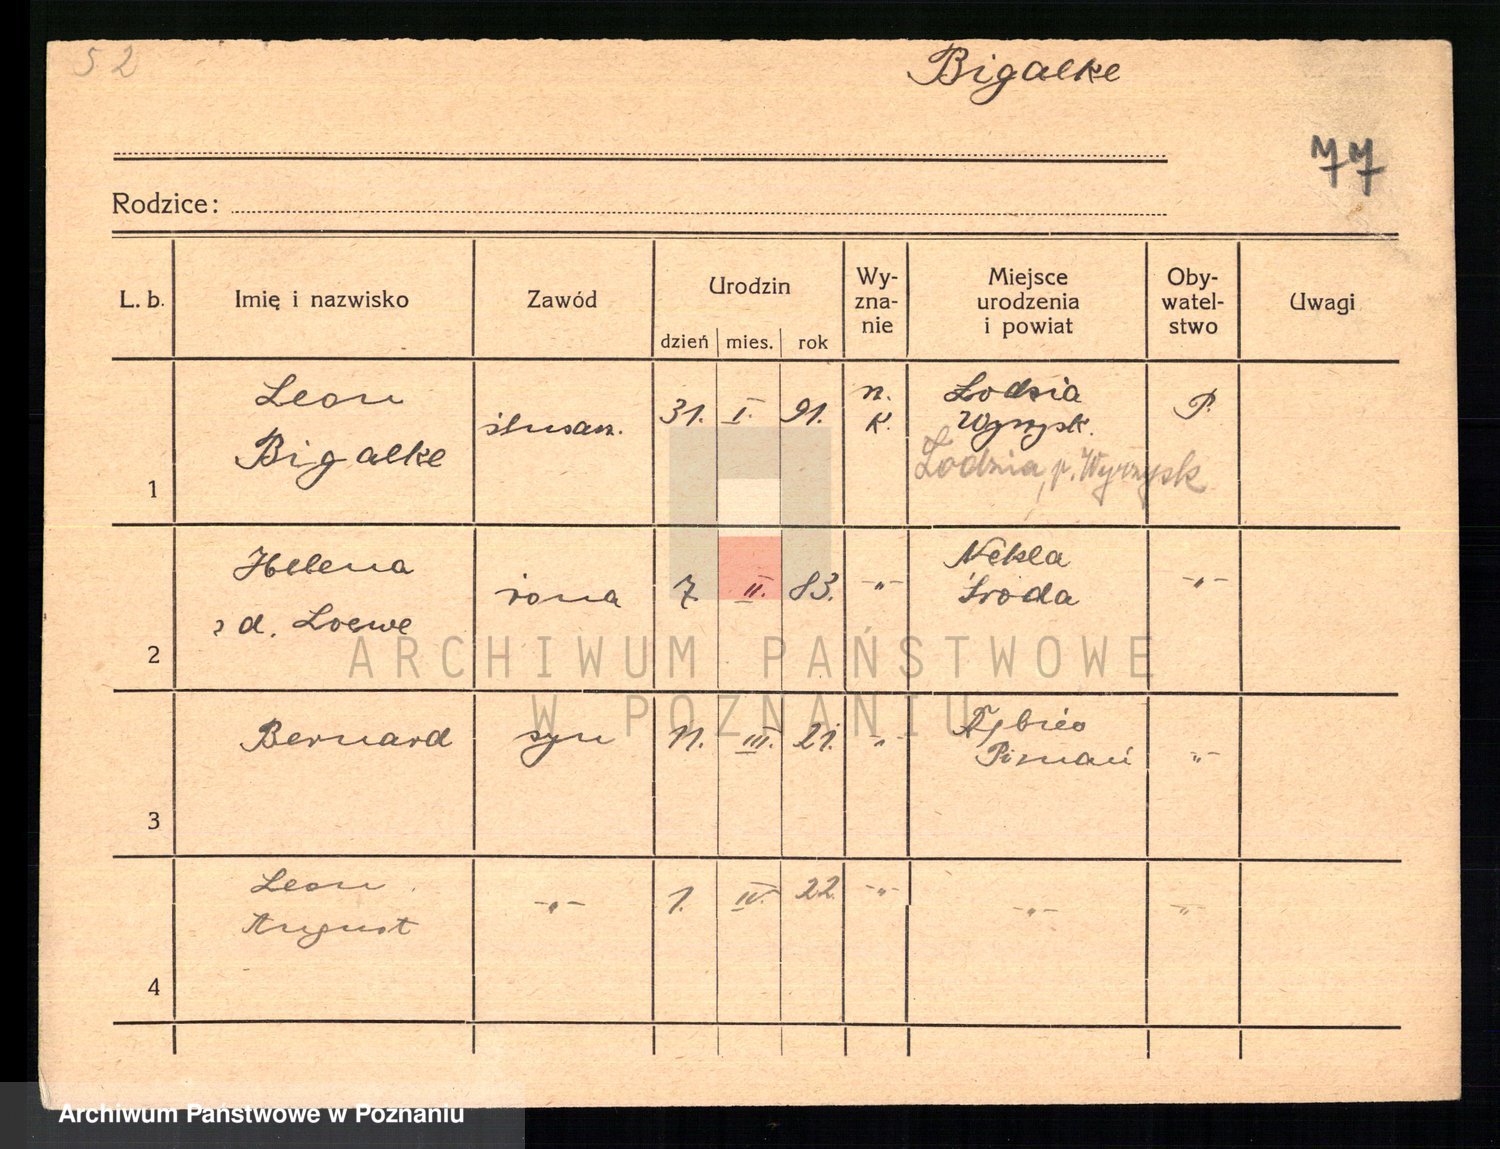 52
Bigalke
77
Rodzice:
L. b.
Imię i nazwisko
Zawód
Urodzin
dzień
mies.
rok
Wy-
zna-
nie
Miejsce
urodzenia
i powiat
Oby-
watel-
stwo
Uwagi
1
Leon
Bigalke
ślusarz.
31.
I.
91.
rz.
k.
Łodzia
Wyrzysk.
Łodzia, p. Wyrzysk
P.
2
Helena
z d. Loewe
żona
7.
II.
83.
-"-
Nekla
Środa
-"-
3
Bernard
syn
11.
III.
21.
-"-
Poznań
-"-
4
Leon
August
-"-
1.
IV.
22.
-"-
-"-
-"-
ARCHIWUM PAŃSTWOWE
W POZNANIU
Archiwum Państwowe w Poznaniu